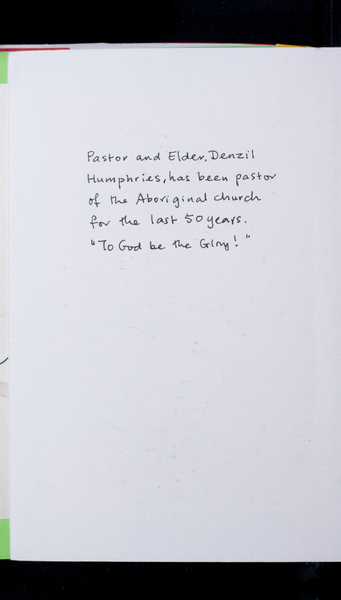 Pastor and Elder, Denzil
Humphries, has been pastor
of the Aboriginal church
for the last 50 years.
"To God be the Glory!"